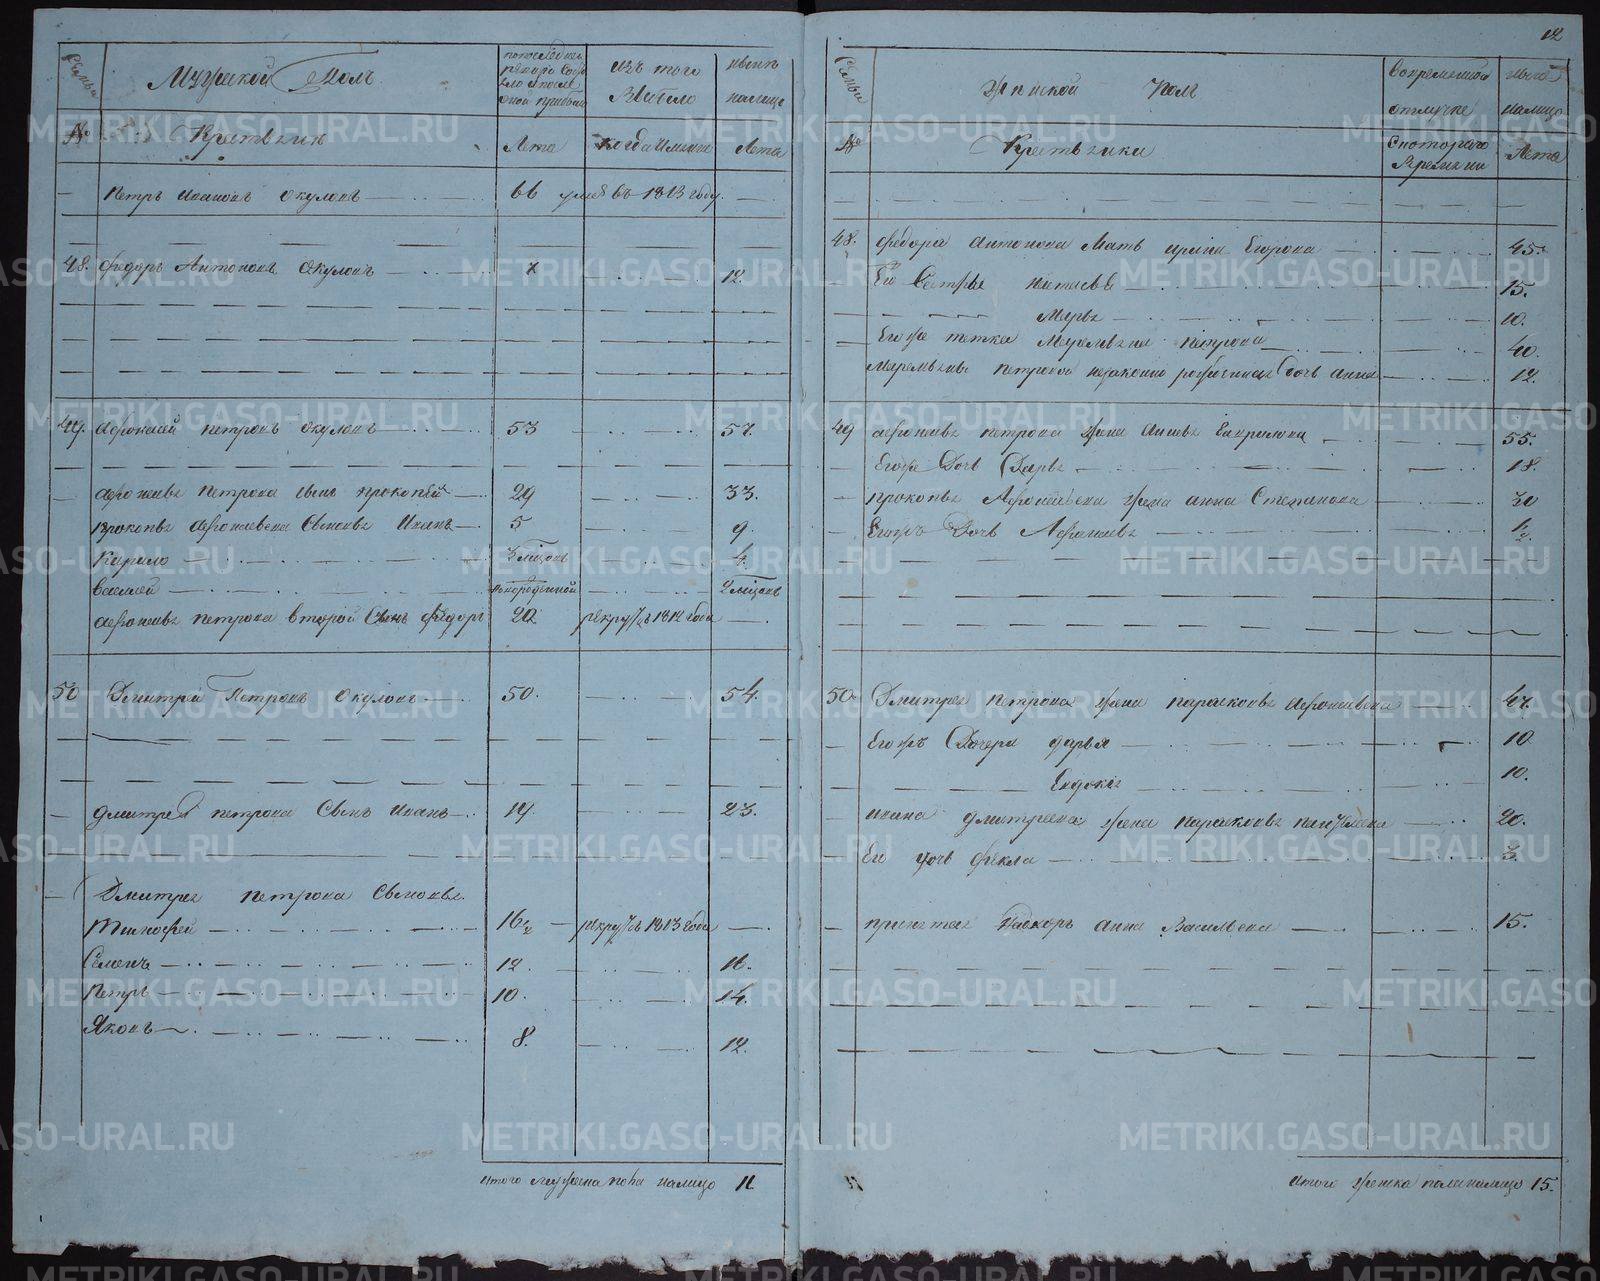 семьи
Мужеской Полъ
по последней ревизiи состояло и после оной прибыло
изъ того выбыло
ныне налицо
№
Крестьяне
Лета
когда именно
Лета
Петръ Ивановъ Окуловъ 66 умеръ въ 1813 году
48. Федоръ Антоновъ Окуловъ 12.
49. Афонасей Петровъ Окуловъ 53 57.
Афонасья Петрова сынъ Прокопей 29 33.
Прокопья Афонасьева сыновья Иванъ 5 9
Кирило 3 месяцовъ 4.
Василей новорожденной 2 месяцовъ
Афонасья Петрова второй сынъ Федоръ 20 рекрутъ 1812 года
50 Дмитрей Петровъ Окуловъ 50. 54.
Дмитрея Петрова сынъ Иванъ 19. 23.
Дмитрея Петрова сыновья
Тимофей 16 1/2 рекрутъ 1813 года
Семенъ 12 16.
Петръ 10. 14.
Яковъ 8. 12.
итого мужеска пола налицо 11.
12
семьи
Женской Полъ
во временной отлучке
ныне налицо
№
Крестьянки
с котораго времени
Лета
48. Федора Антонова мать Ирина Егорова 45.
Его сестры Настасья 15.
Марья 10.
Его же тетка Маремьяна Петрова 40.
Маремьяны Петровой незаконно рожденная дочь Анна 12.
49 Афонасья Петрова жена Анисья Гаврилова 55.
Его же дочь Дарья 18.
Прокопья Афонасьева жена Анна Степанова 30
Егожъ дочь Афонасья 1/2.
50. Дмитрея Петрова жена Парасковья Афонасьева 47.
Егожъ дочери Дарья 10.
Евдокiя 10.
Ивана Дмитреева жена Парасковья 20.
Его дочь Фекла 3.
Анна Васильева 15.
итого женска пола налицо 15.
METRIKI.GASO-URAL.RU